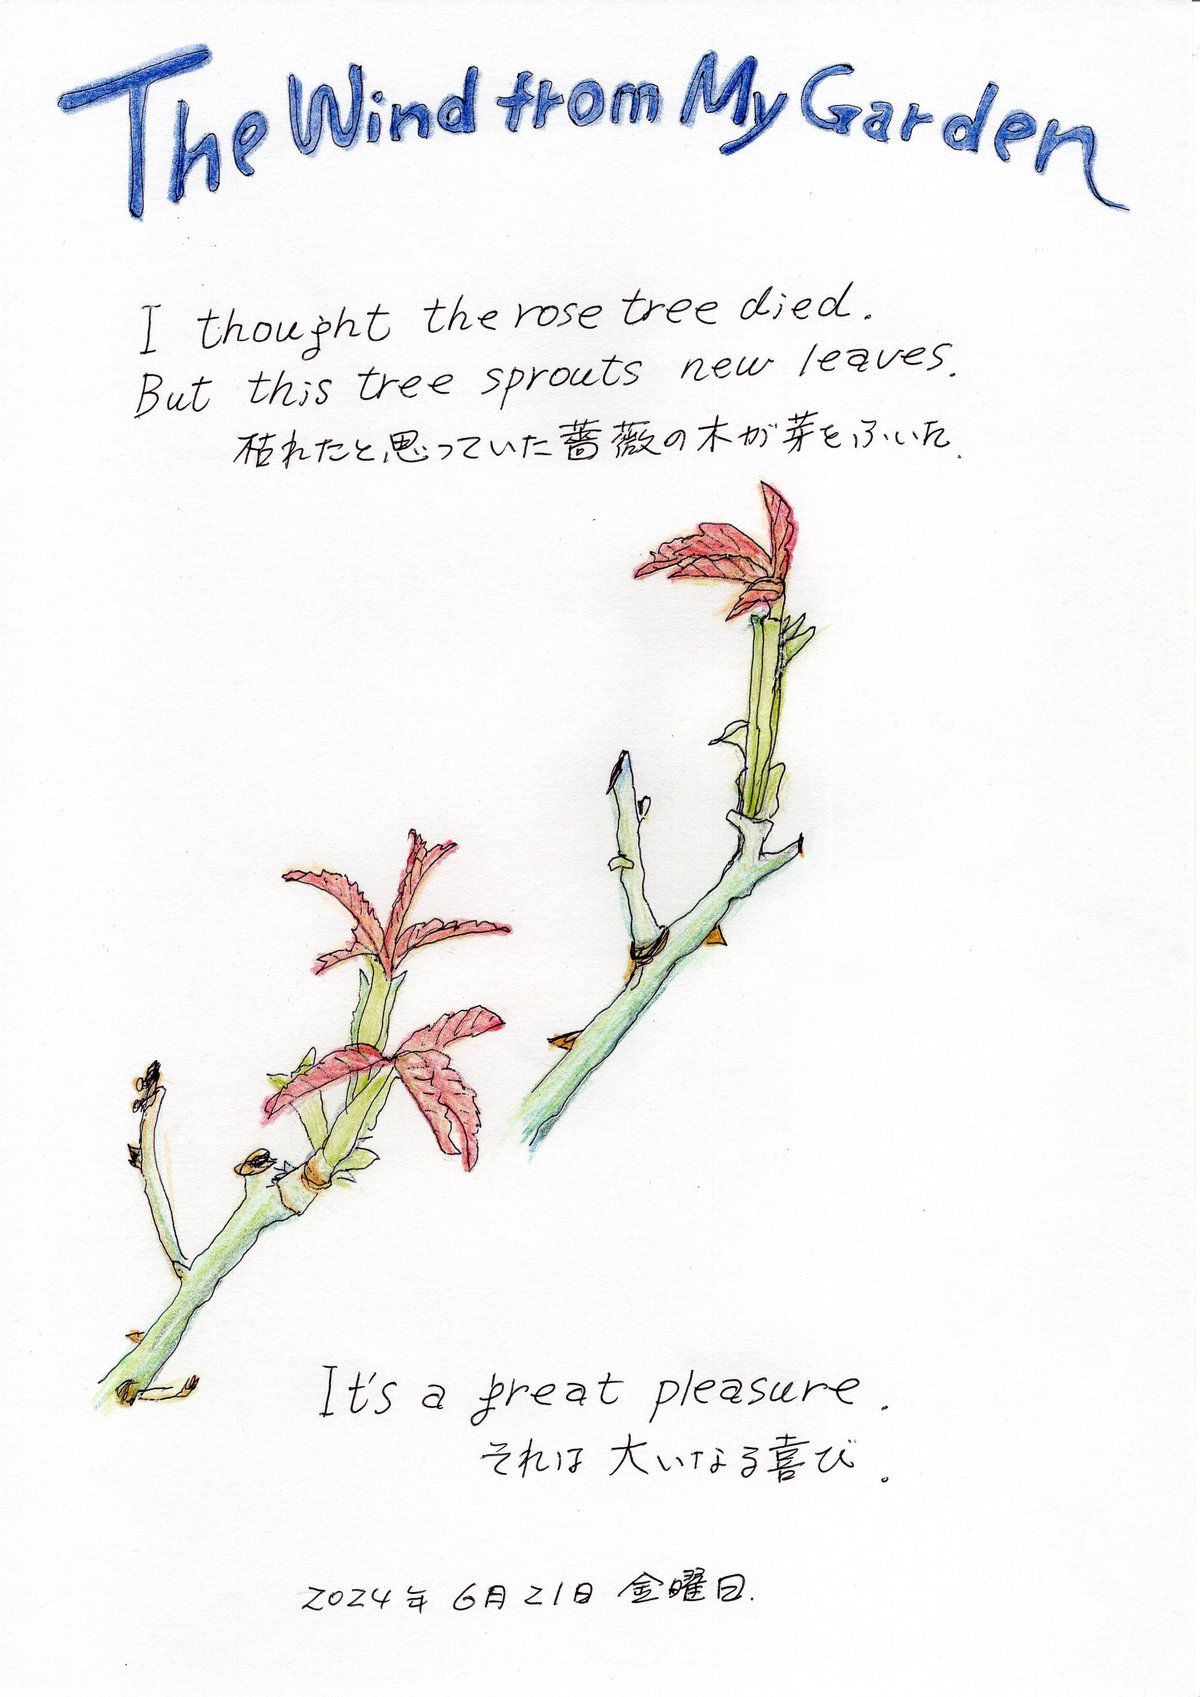 The Wind from My Garden
I thought the rose tree died.
But this tree sprouts new leaves.
枯れたと思っていた薔薇の木が芽をふいた.
It's a great pleasure.
それは大いなる喜び。
2024年6月21日 金曜日.